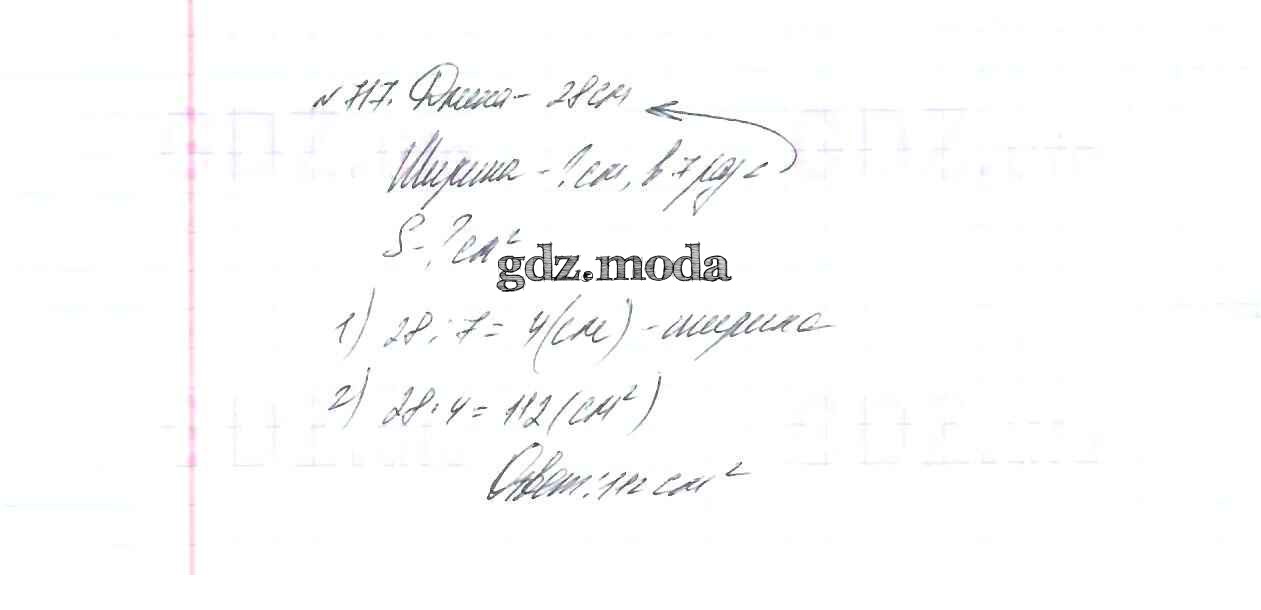 № 717. Длина - 28 см
Ширина - ? см, в 7 раз <
S - ? см²
gdz.moda
1) 28 : 7 = 4 (см) - ширина
2) 28 · 4 = 112 (см²)
Ответ: 112 см²